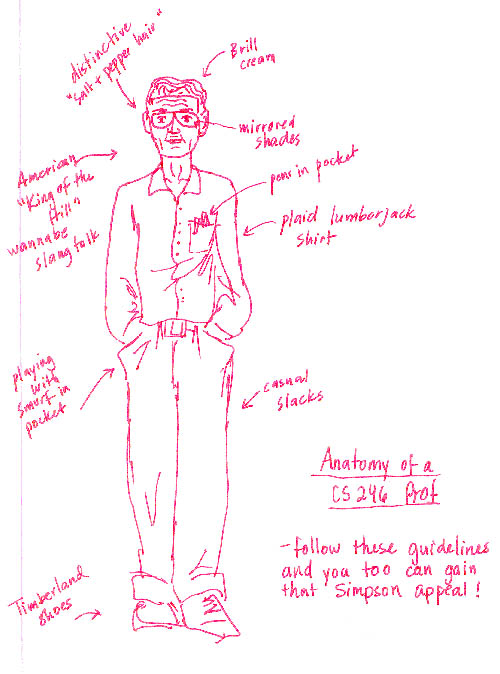 distinctive
"salt & pepper hair"
Brill
cream
mirrored
shades
pens in pocket
American
"King of the
Hill"
wannabe
slang talk
plaid lumberjack
shirt
playing
with
smurf in
pocket
casual
slacks
Anatomy of a
CS 246 Prof
- follow these guidelines
and you too can gain
that Simpson appeal!
Timberland
shoes